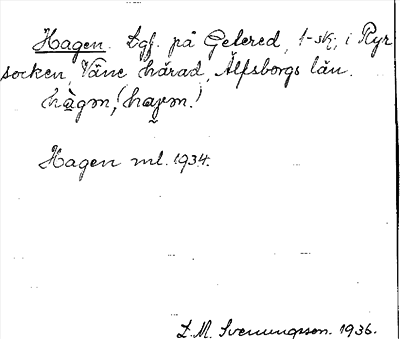 Hagen. Lgf. på Gelered, 1-sk, i Ryr
socken, Väne härad, Älfsborgs län.
hàgɘn, (hayɘn.)
Hagen ml. 1934.
L. M. Svenungsson. 1936.